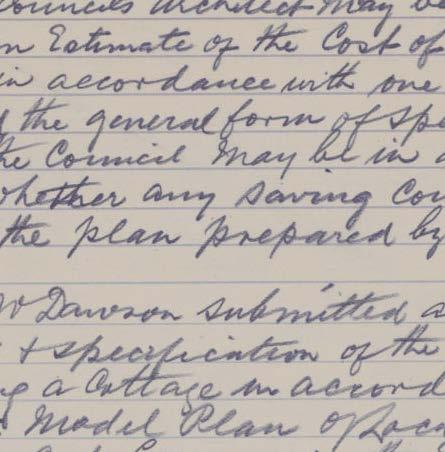 Councils Architect May be
n Estimate of the Cost of
in accordance with one
the general form of Spe
the Council May be in a
whether any Saving Cou
the plan prepared by
W Dawson submitted a
+ specification of the
g a Cottage in accord
Model Plan of Loc